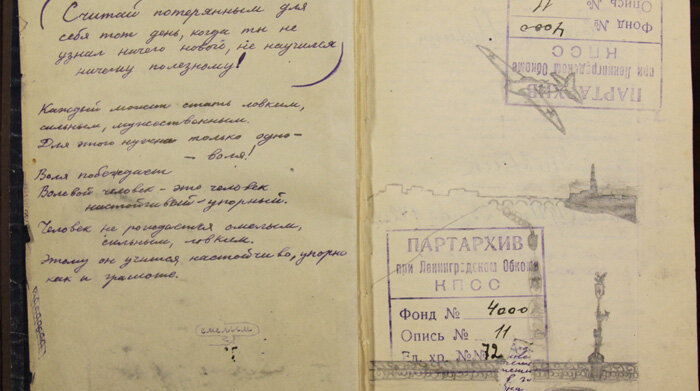 Считай потерянным для
себя тот день, когда ты не
узнал ничего новой, не научился
ничему полезному!
Каждый может стать ловким,
сильным, мужественным.
Для этого нужна только одно-
- воля!
Воля побеждает
Волевой человек - это человек
настойчивый - упорный.
Человек не рождается смелым,
сильным, ловким.
Этому он учится настойчиво, упорно
как и грамоте.
смелым
ПАРТАРХИВ
при Ленинградском Обкоме
КПСС
Фонд № 4000
Опись № 11
ПАРТАРХИВ
при Ленинградском Обкоме
КПСС
Фонд № 4000
Опись № 11
Ед. хр. № 72